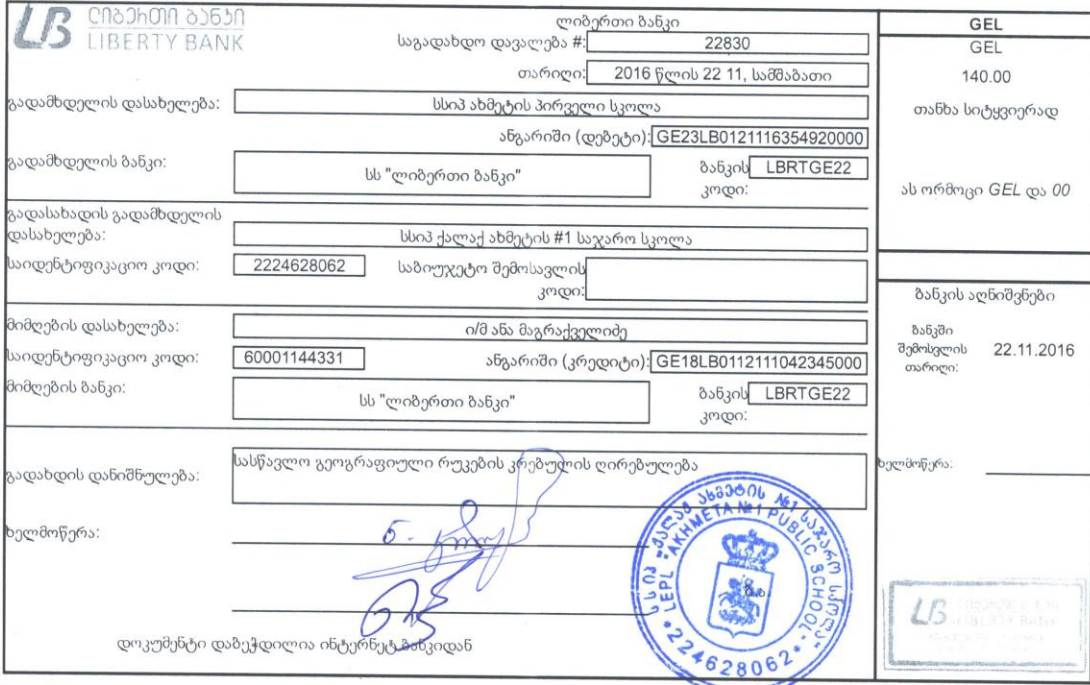 ლიბერთი ბანკი
LIBERTY BANK
ლიბერთი ბანკი
საგადახდო დავალება #: 22830
თარიღი: 2016 წლის 22 11, სამშაბათი
გადამხდელის დასახელება: სსიპ ახმეტის პირველი სკოლა
ანგარიში (დებეტი): GE23LB0121116354920000
გადამხდელის ბანკი: სს "ლიბერთი ბანკი" ბანკის კოდი: LBRTGE22
გადასახადის გადამხდელის
დასახელება: სსიპ ქალაქ ახმეტის #1 საჯარო სკოლა
საიდენტიფიკაციო კოდი: 2224628062 საბიუჯეტო შემოსავლის
კოდი:
მიმღების დასახელება: ი/მ ანა მაგრაქველიძე
საიდენტიფიკაციო კოდი: 60001144331 ანგარიში (კრედიტი): GE18LB0112111042345000
მიმღების ბანკი: სს "ლიბერთი ბანკი" ბანკის კოდი: LBRTGE22
გადახდის დანიშნულება: სასწავლო გეოგრაფიული რუკების კრებულის ღირებულება
ხელმოწერა:
დოკუმენტი დაბეჭდილია ინტერნეტ ბანკიდან
GEL
GEL
140.00
თანხა სიტყვიერად
ას ორმოცი GEL და 00
ბანკის აღნიშვნები
ბანკში
შემოსვლის 22.11.2016
თარიღი:
ხელმოწერა:
სსიპ "ქალაქ ახმეტის №1 საჯარო სკოლა"
LEPL "AKHMETA №1 PUBLIC SCHOOL"
224628062
ბ.ა.
LIBERTY BANK